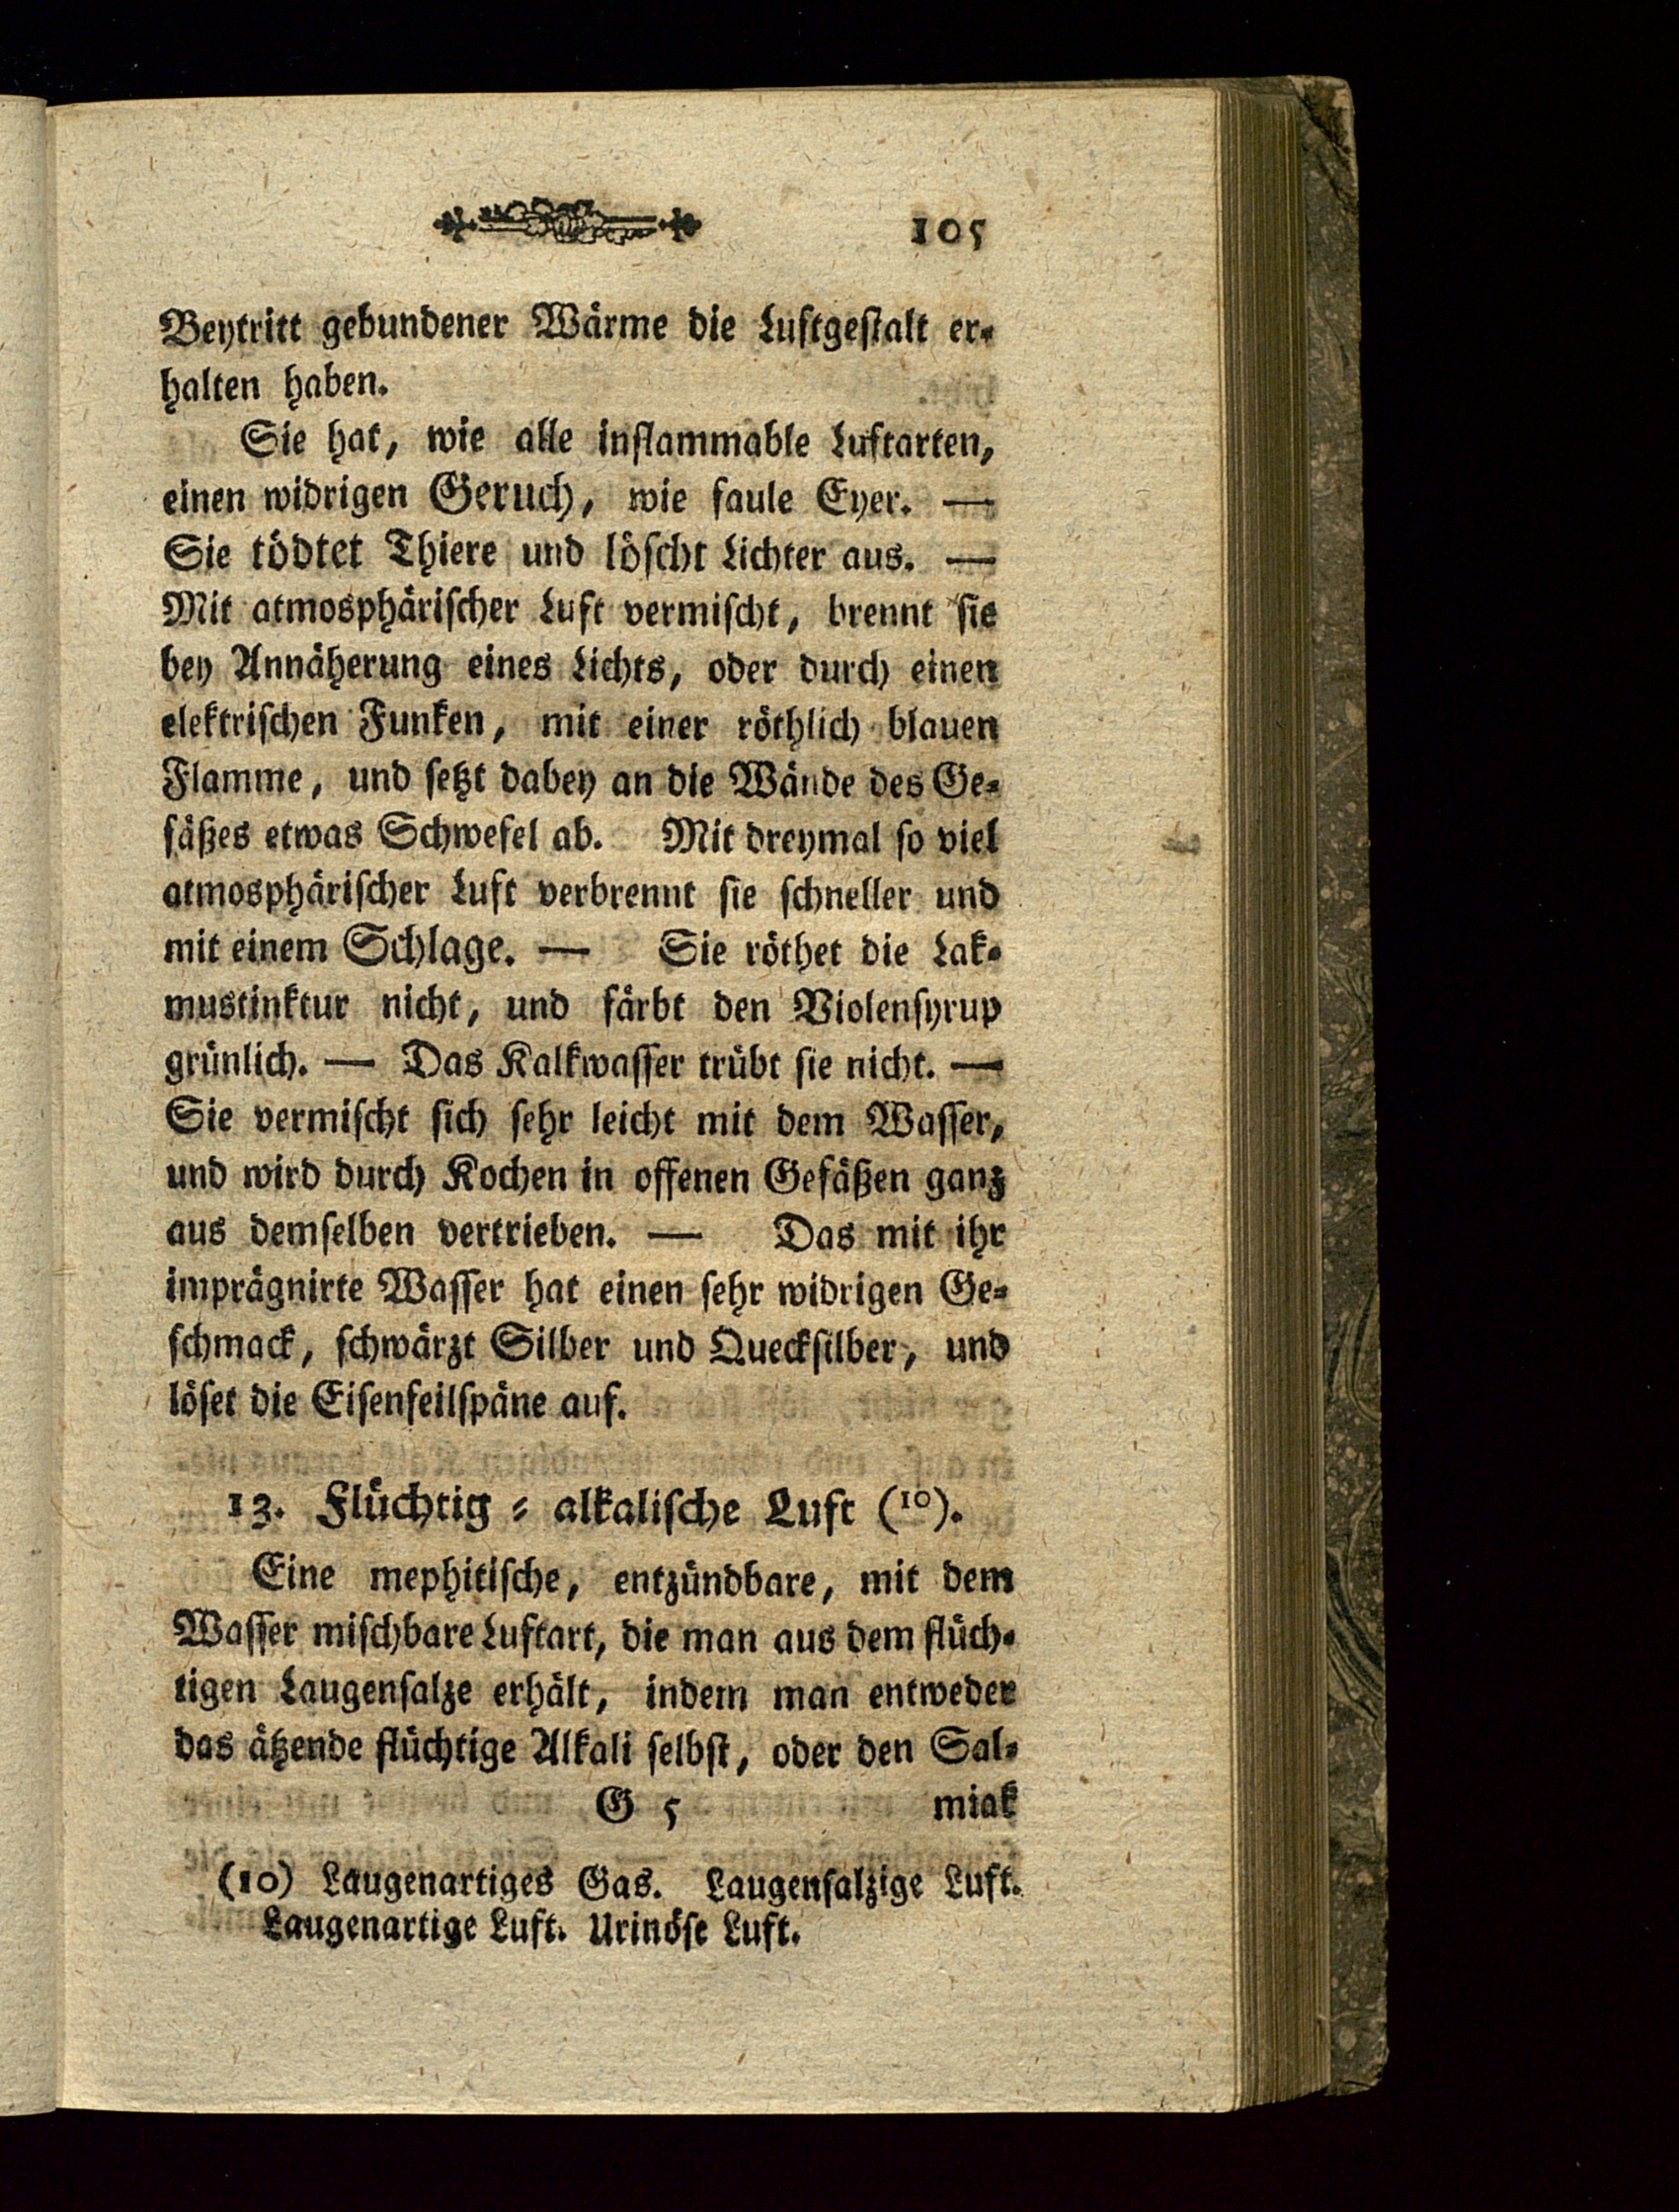 105
Beytritt gebundener Wärme die Luftgestalt er-
halten haben.
Sie hat, wie alle inflammable Luftarten,
einen widrigen Geruch, wie faule Eyer. —
Sie tödtet Thiere und löscht Lichter aus. —
Mit atmosphärischer Luft vermischt, brennt sie
bey Annäherung eines Lichts, oder durch einen
elektrischen Funken, mit einer röthlich blauen
Flamme, und setzt dabey an die Wände des Ge-
fäßes etwas Schwefel ab. Mit dreymal so viel
atmosphärischer Luft verbrennt sie schneller und
mit einem Schlage. — Sie röthet die Lak-
mustinktur nicht, und färbt den Violensyrup
grünlich. — Das Kalkwasser trübt sie nicht. —
Sie vermischt sich sehr leicht mit dem Wasser,
und wird durch Kochen in offenen Gefäßen ganz
aus demselben vertrieben. — Das mit ihr
imprägnirte Wasser hat einen sehr widrigen Ge-
schmack, schwärzt Silber und Quecksilber, und
löset die Eisenfeilspäne auf.
13. Flüchtig - alkalische Luft (10).
Eine mephitische, entzündbare, mit dem
Wasser mischbare Luftart, die man aus dem flüch-
tigen Laugensalze erhält, indem man entweder
das ätzende flüchtige Alkali selbst, oder den Sal-
G 5 miak
(10) Laugenartiges Gas. Laugensalzige Luft.
Laugenartige Luft. Urinöse Luft.